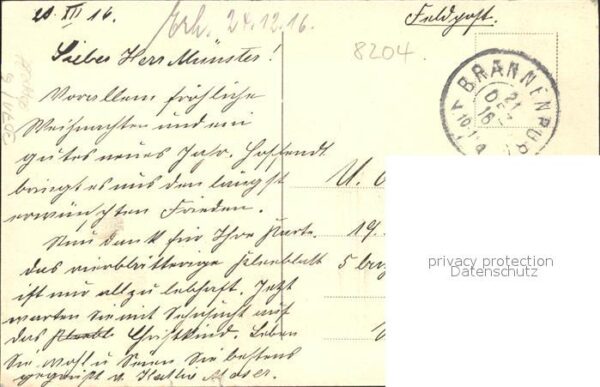 20 XII 16.
Erh. 24.12.16.
Feldpost.
8204.
Lieber Herr Münster!
BRANNENBUR
21
DEZ
16
Vor allem fröhliche
Weihnachten und ein
gutes neues Jahr. Hoffentl.
bringt es uns den längst
erwünschten Frieden.
Nun dank für Ihre Karte.
das vierblätterige Kleeblatt
ist nur allzu lebhaft. Jetzt
warten Sie mit Sehnsucht auf
das Christkind. Leben
Sie wohl u. Seien Sie bestens
gegrüßt v. Moser.
U. O
19.
5 bay
privacy protection
Datenschutz